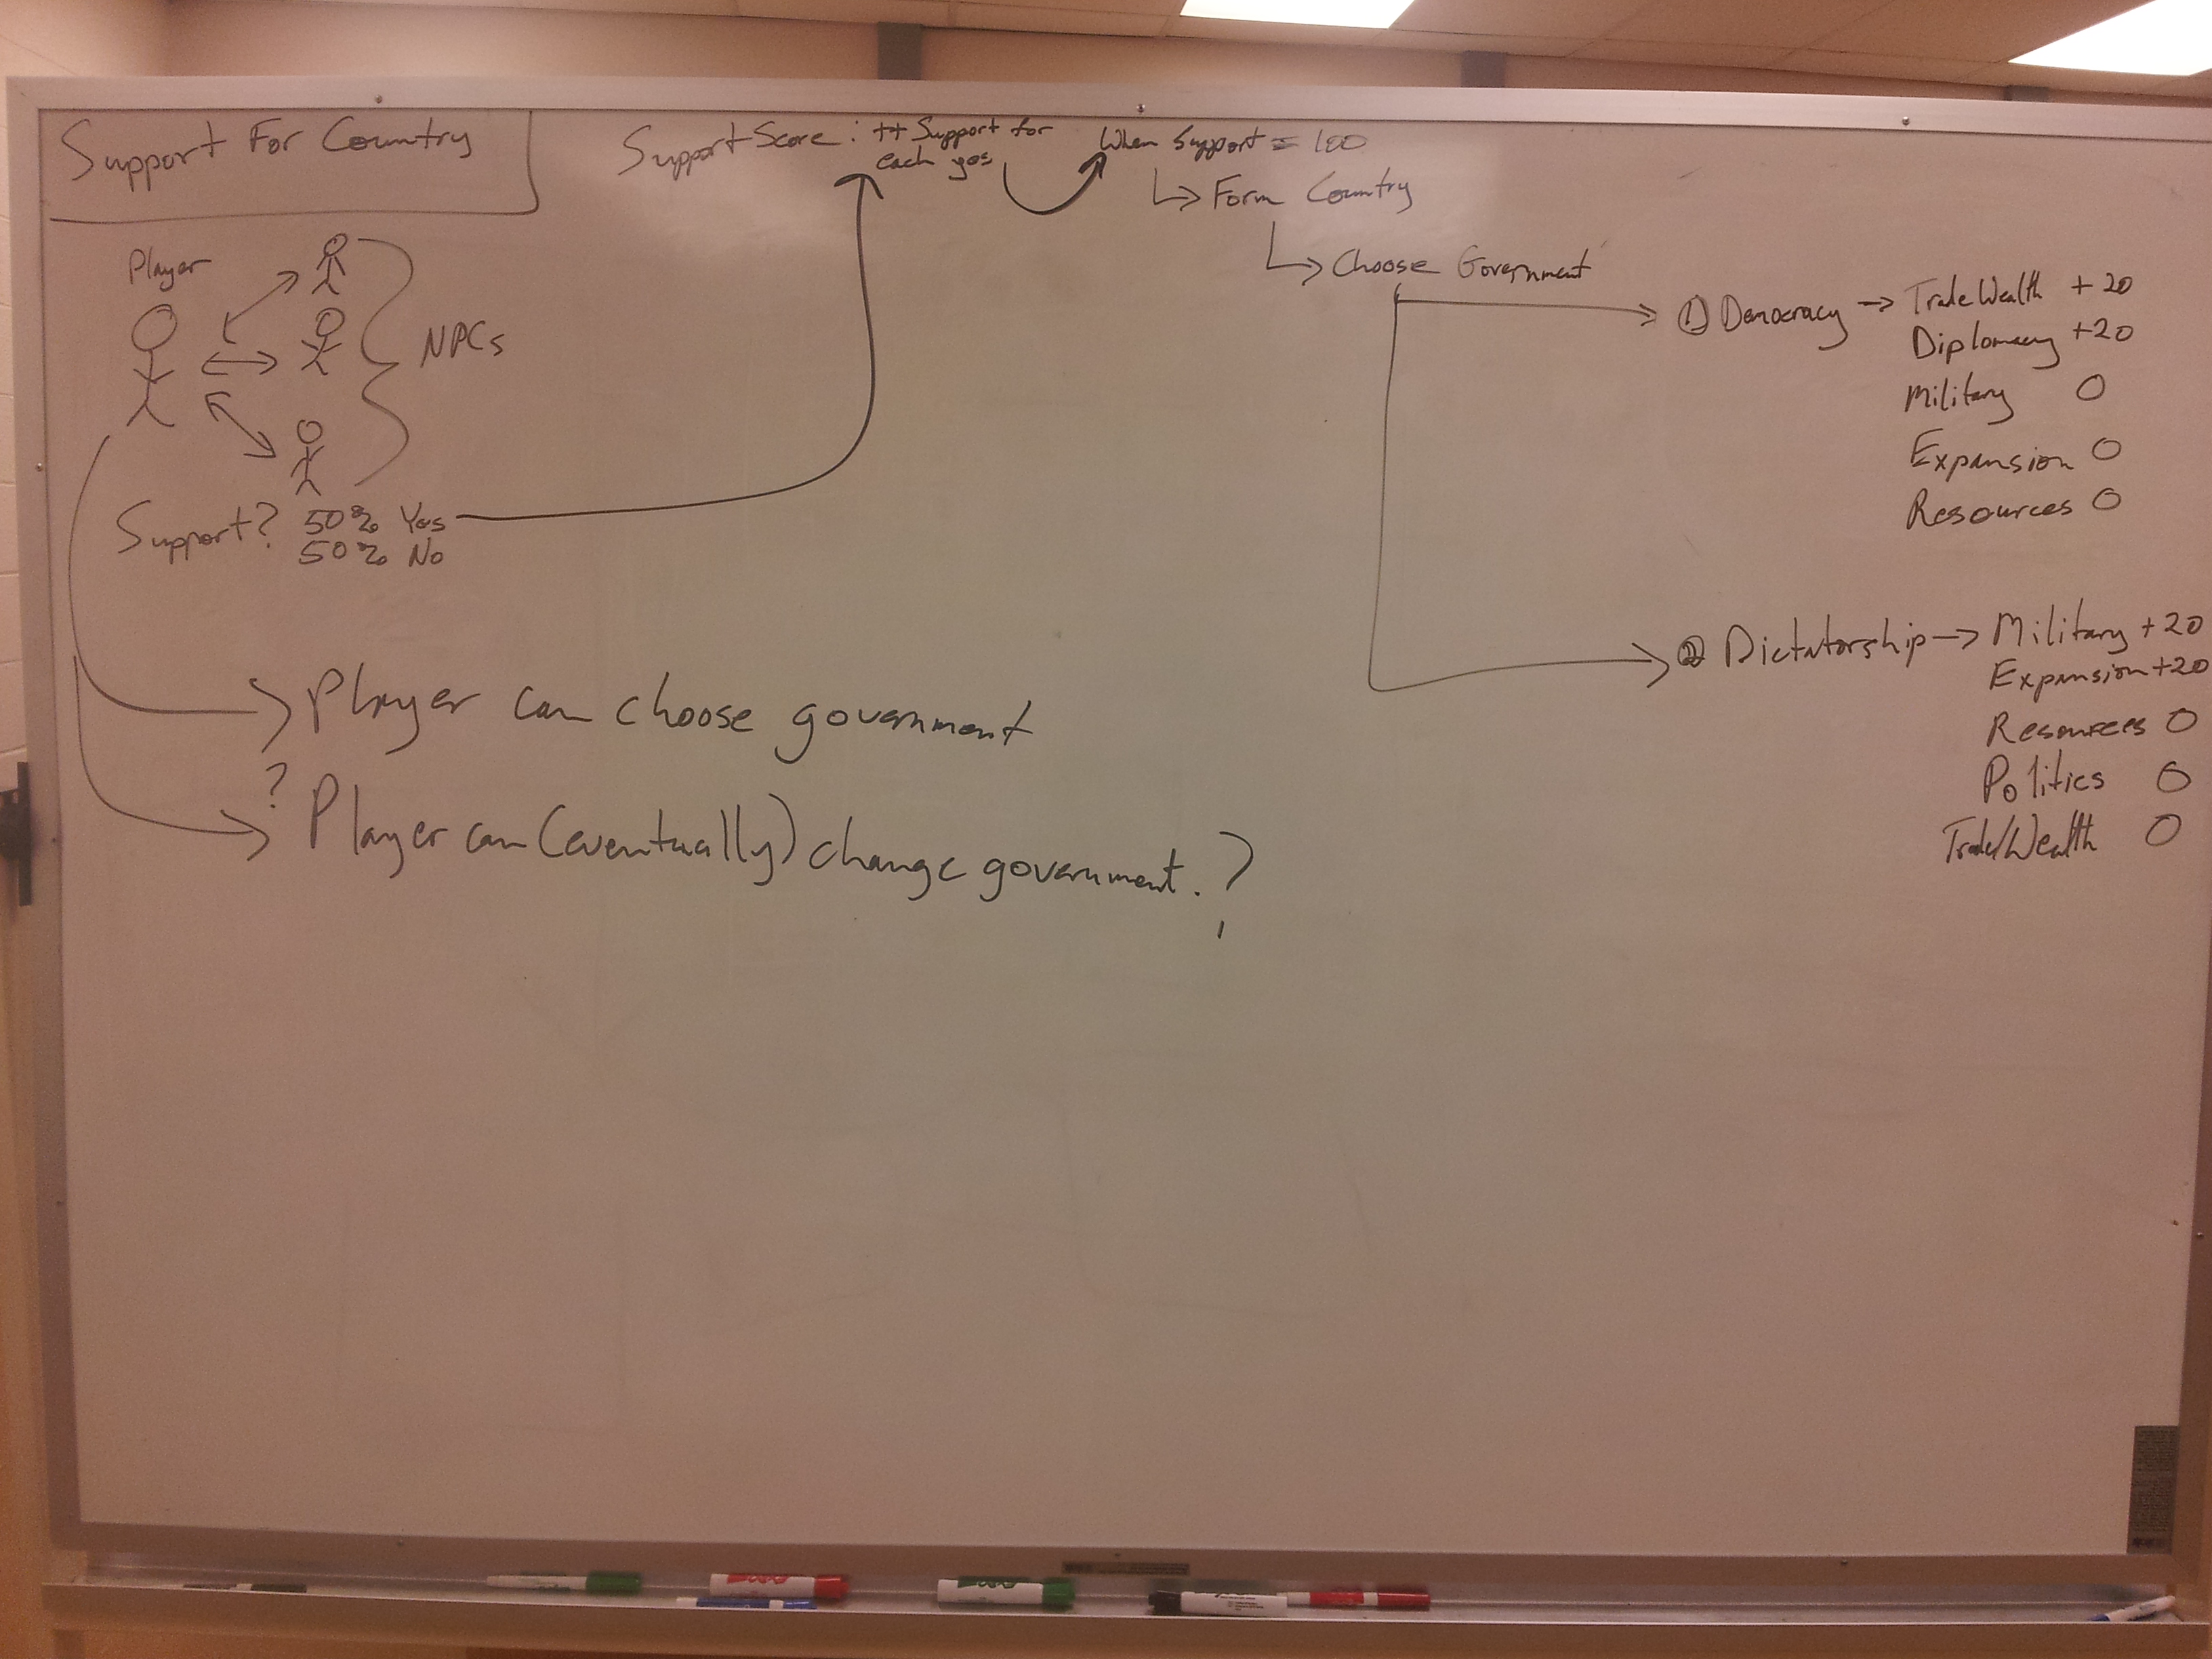 Support For Country
Support Score: ++ Support for
each yes
When Support = 100
Form Country
Choose Government
Player
NPCs
Support? 50% Yes
50% No
① Democracy → Trade Wealth +20
Diplomacy +20
Military 0
Expansion 0
Resources 0
② Dictatorship → Military +20
Expansion +20
Resources 0
Politics 0
Trade/Wealth 0
Player can choose government
? Player can (eventually) change government. ?